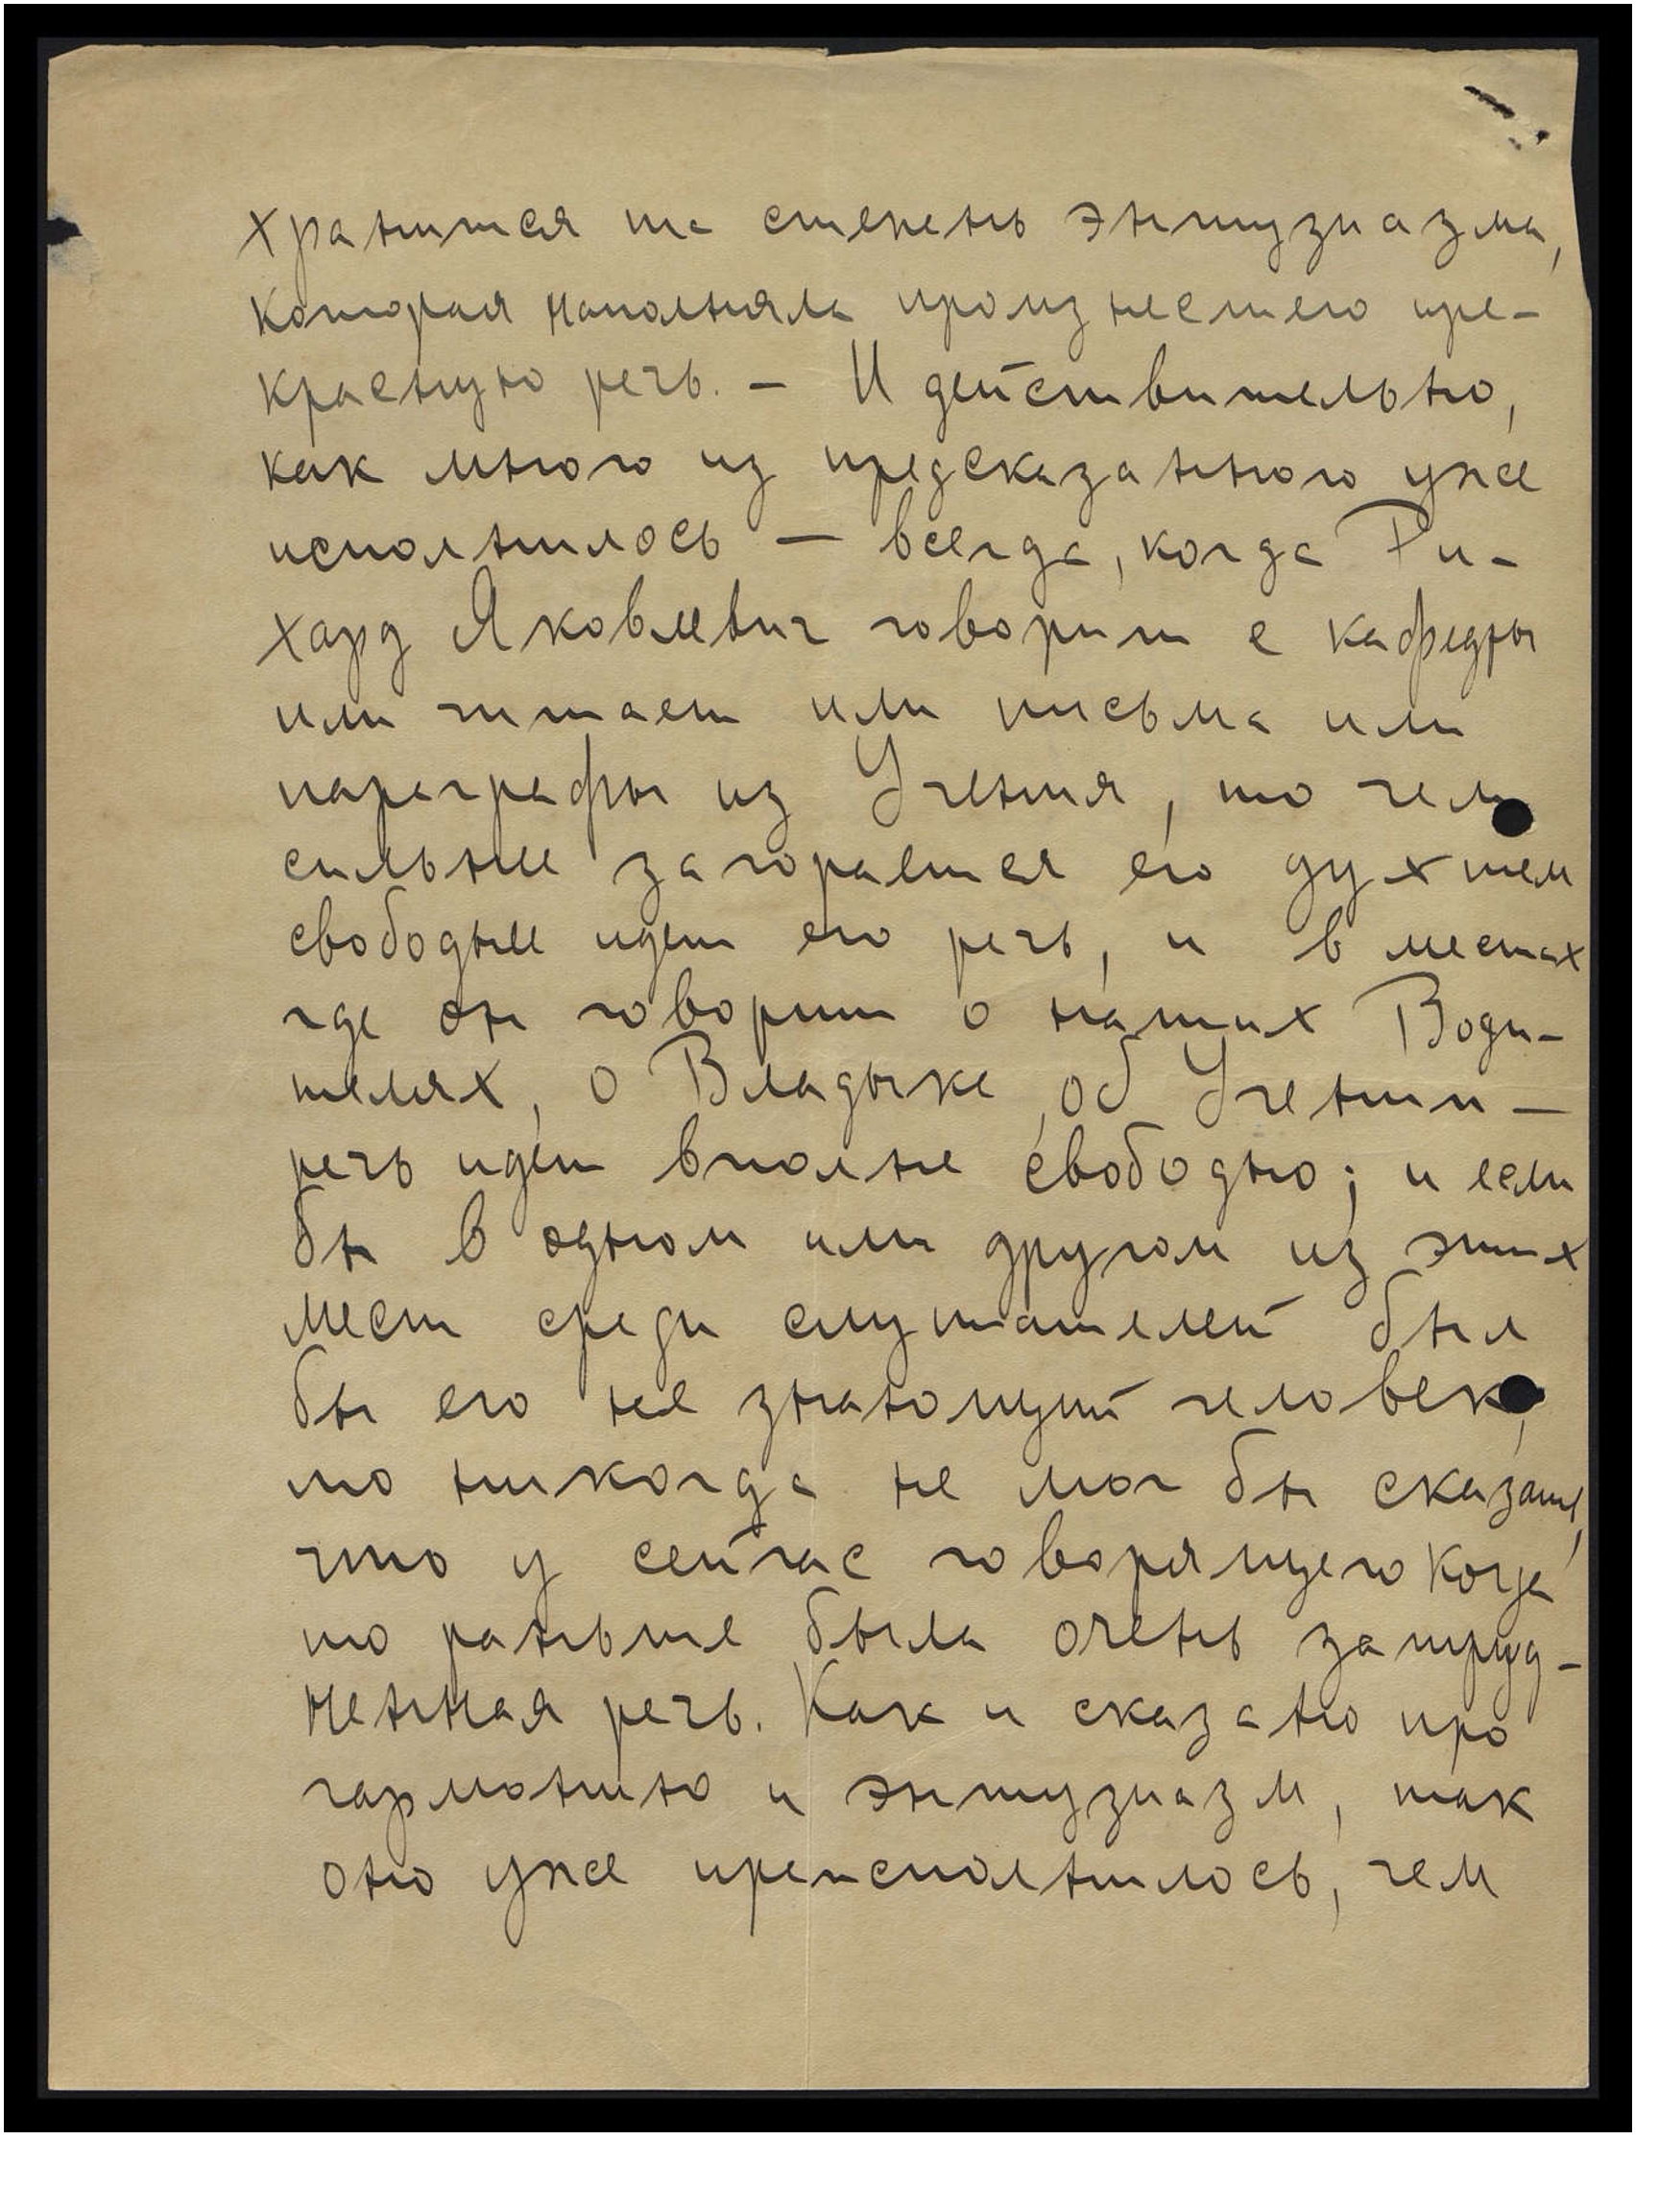 хранится та степень энтузиазма,
которая наполняла произнесшего пре-
красную речь. – И действительно,
как много из предсказанного уже
исполнилось – всегда, когда Ри-
хард Яковлевич говорит с кафедры
или читает или письма или
параграфы из Учения, то чем
сильнее загорается его дух тем
свободнее идет его речь, и в местах
где он говорит о наших Води-
телях, о Владыке, об Учении –
речь идет вполне свободно; и если
бы в одном или другом из этих
мест среди слушателей был
бы его не знающий человек,
то никогда не мог бы сказать,
что у сейчас говорящего когда
то раньше была очень затруд-
ненная речь. Как и сказано про
гармонию и энтузиазм, так
оно уже преисполнилось, чем